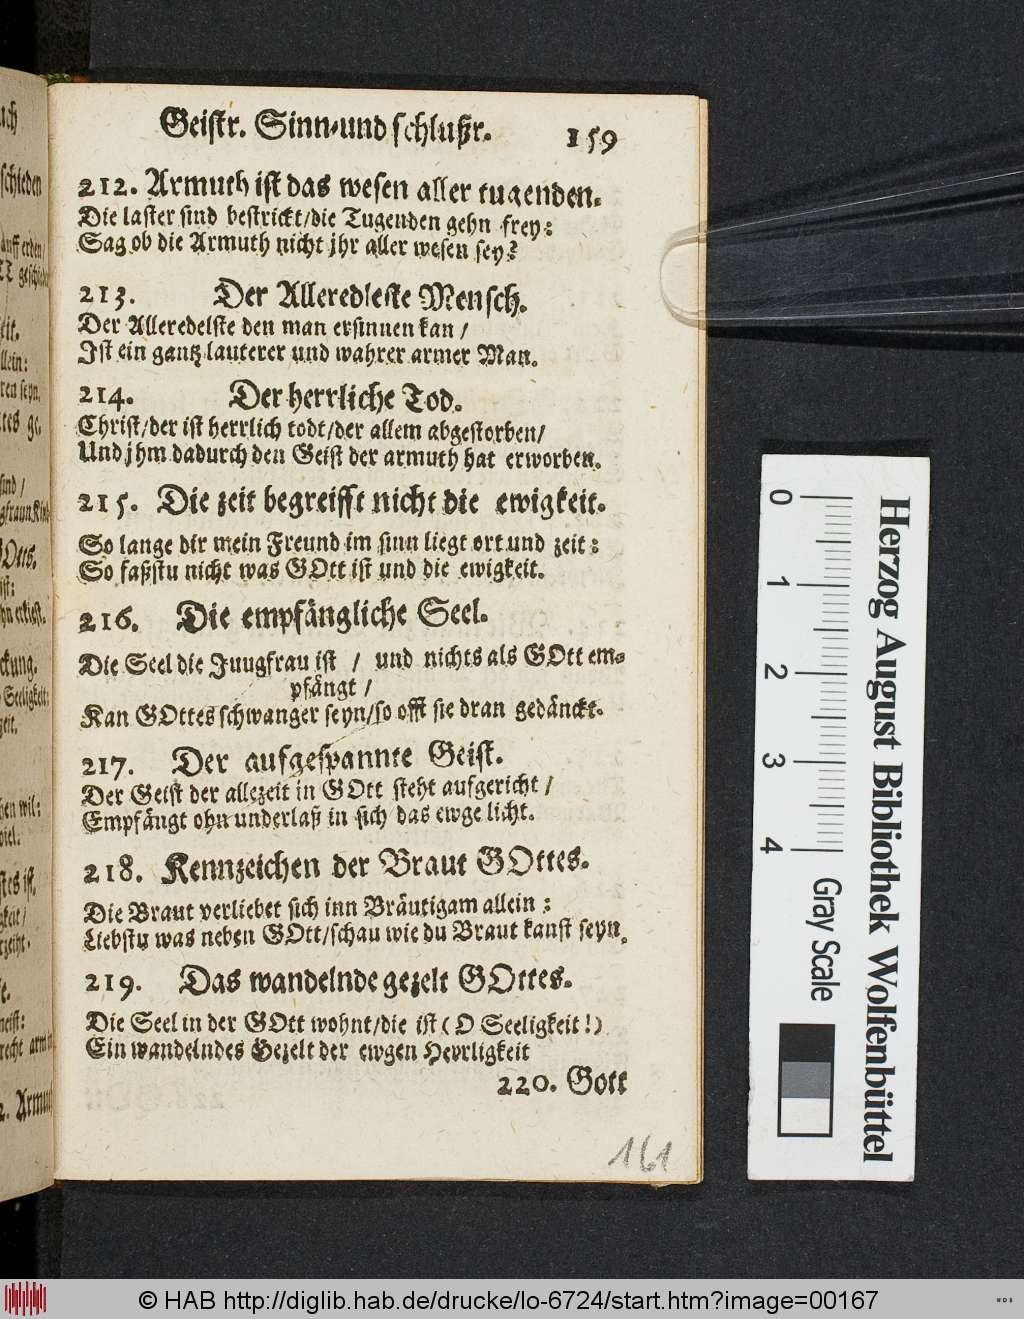 Geistr. Sinn-und schlußr. 159
212. Armuth ist das wesen aller tugenden.
Die laster sind bestrickt/die Tugenden gehn frey:
Sag ob die Armuth nicht jhr aller wesen sey?
213. Der Alleredleste Mensch.
Der Alleredelste den man ersinnen kan /
Ist ein gantz lauterer und wahrer armer Man.
214. Der herrliche Tod.
Christ/der ist herrlich todt/der allem abgestorben/
Und jhm dadurch den Geist der armuth hat erworben.
215. Die zeit begreifft nicht die ewigkeit.
So lange dir mein Freund im sinn liegt ort und zeit:
So faßstu nicht was GOtt ist und die ewigkeit.
216. Die empfängliche Seel.
Die Seel die Juugfrau ist / und nichts als GOtt em-
pfängt /
Kan GOttes schwanger seyn/so offt sie dran gedänckt.
217. Der aufgespannte Geist.
Der Geist der allezeit in GOtt steht aufgericht /
Empfängt ohn underlaß in sich das ewge licht.
218. Kennzeichen der Braut GOttes.
Die Braut verliebet sich inn Bräutigam allein:
Liebstu was neben GOtt/schau wie du Braut kanst seyn.
219. Das wandelnde gezelt GOttes.
Die Seel in der GOtt wohnt/die ist (O Seeligkeit!)
Ein wandelndes Gezelt der ewgen Herrligkeit
220. Gott
161
0 1 2 3 4
Gray Scale
Herzog August Bibliothek Wolfenbüttel
© HAB http://diglib.hab.de/drucke/lo-6724/start.htm?image=00167